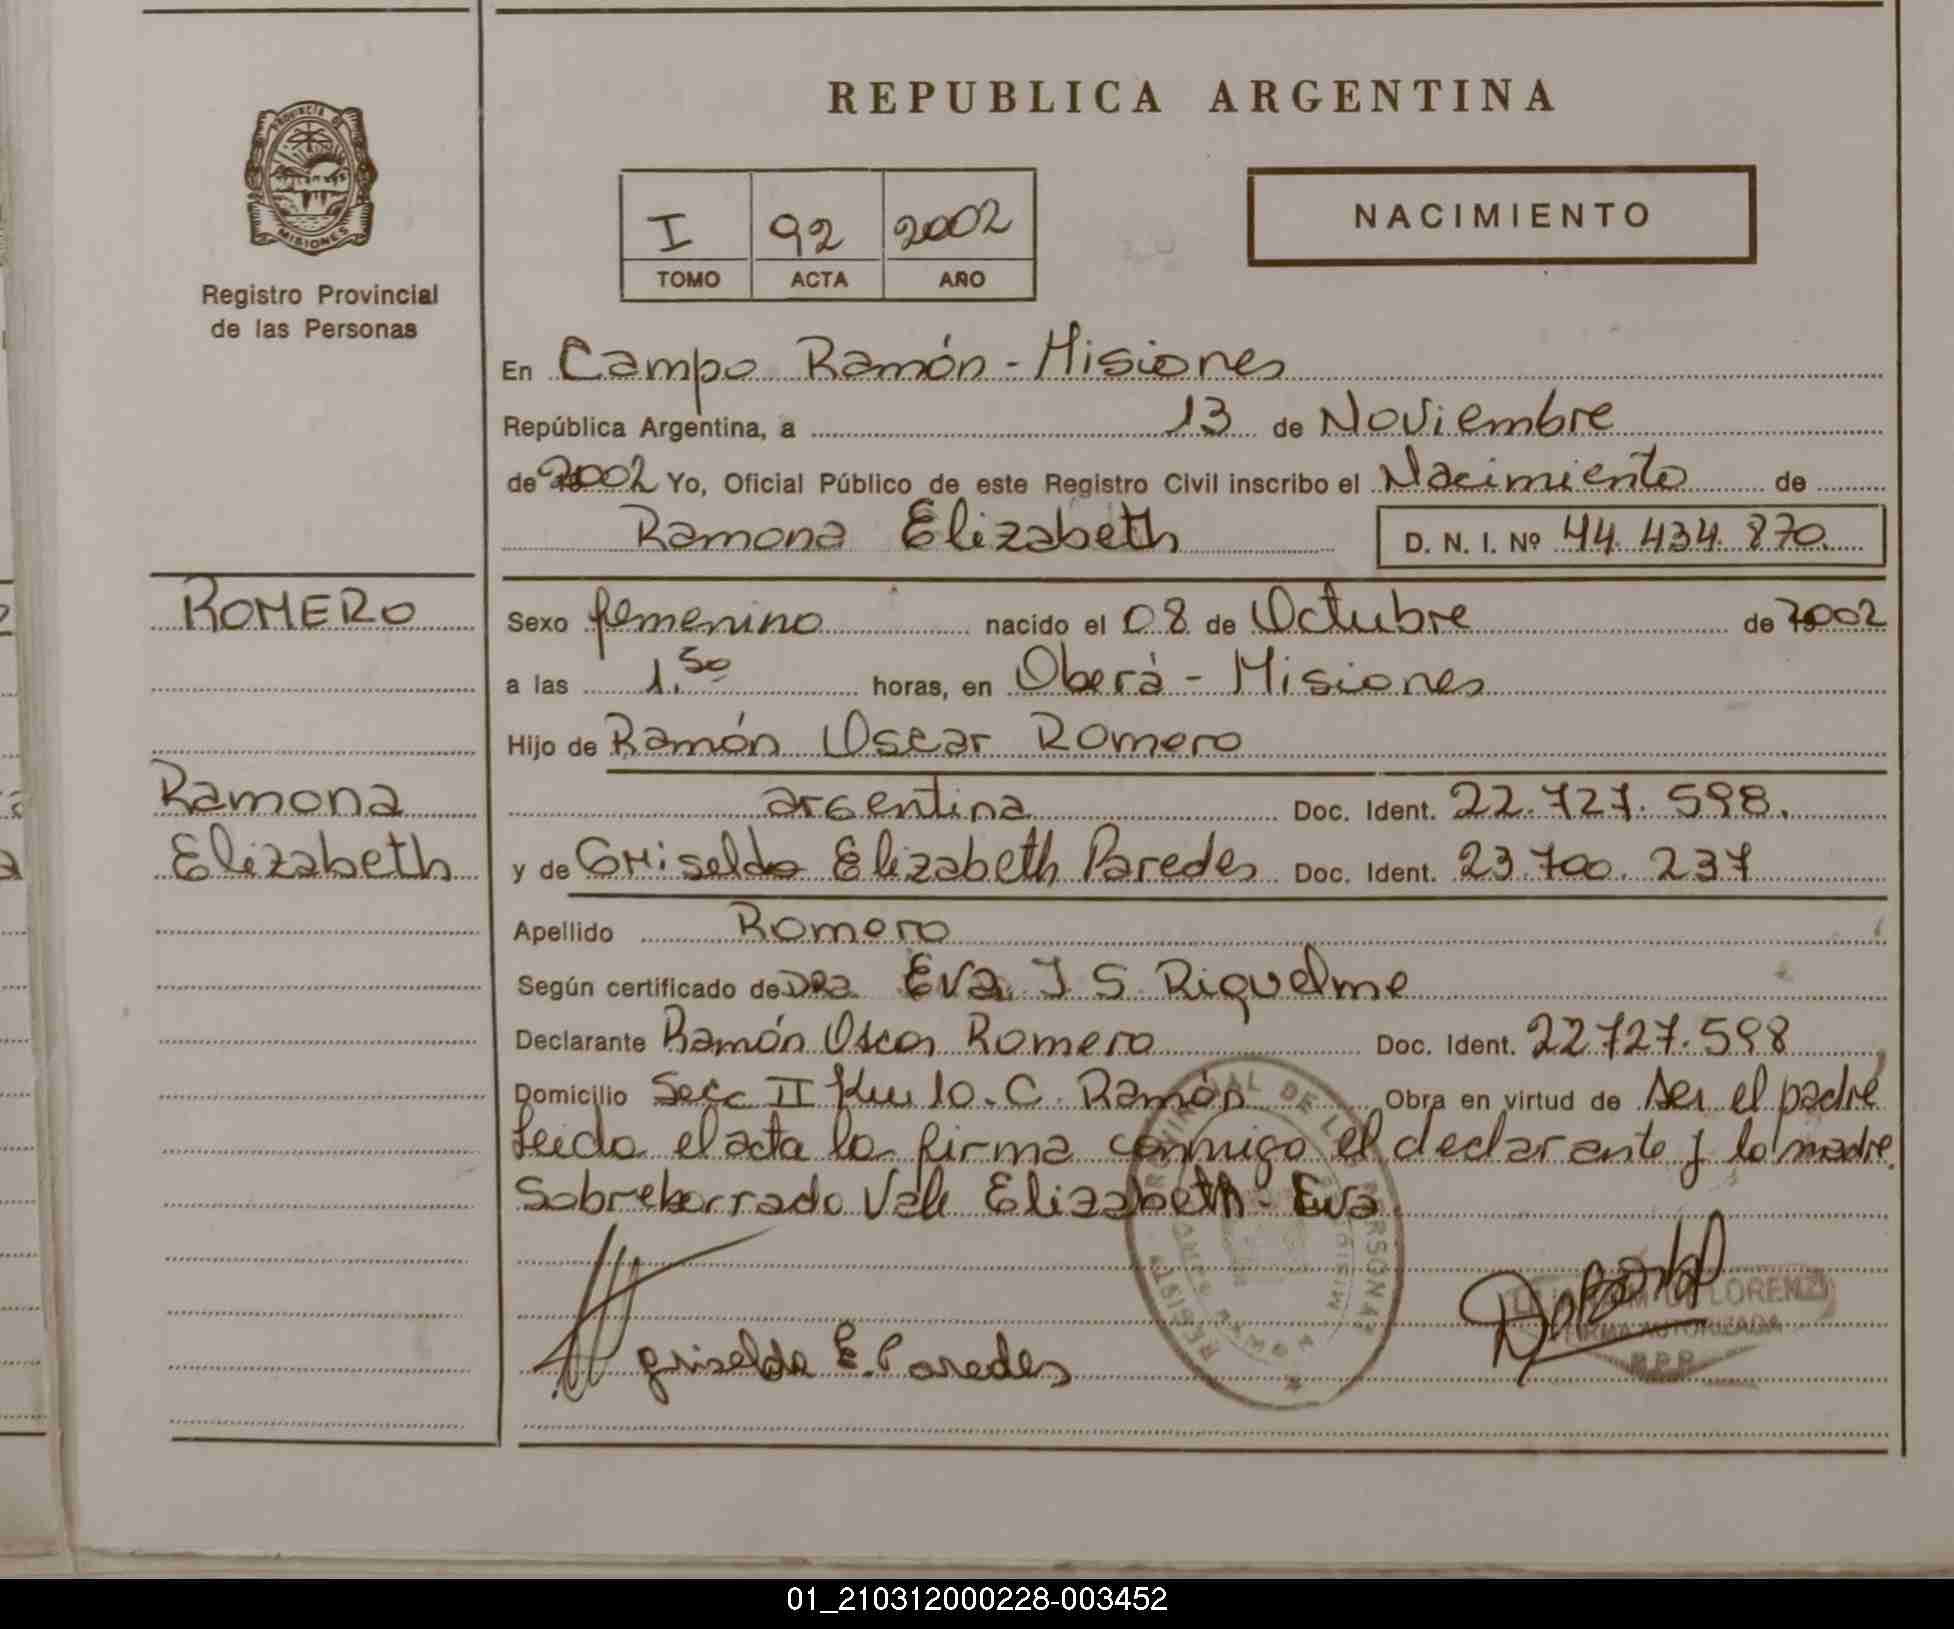 REPUBLICA ARGENTINA
PROVINCIA DE
MISIONES
Registro Provincial
de las Personas
I 92 2002
TOMO ACTA AÑO
NACIMIENTO
En Campo Ramón - Misiones
República Argentina, a 13 de Noviembre
de 2002 Yo, Oficial Público de este Registro Civil inscribo el Nacimiento de
Ramona Elizabeth D. N. I. Nº 44.434.870.
ROMERO
Ramona
Elizabeth
Sexo femenino nacido el 08 de Octubre de 2002
a las 1.50 horas, en Oberá - Misiones
Hijo de Ramón Oscar Romero
argentina Doc. Ident. 22.727.598.
y de Griselda Elizabeth Paredes Doc. Ident. 23.700.237
Apellido Romero
Según certificado de DRa. Eva J S Riquelme
Declarante Ramón Oscar Romero Doc. Ident. 22.727.598
Domicilio Secc II Km 10. C. Ramón Obra en virtud de ser el padre
Leida el acta la firma conmigo el declarante y la madre.
Sobreborrado Vale Elizabeth - Eva
Griselda E. Paredes
FIRMA AUTORIZADA
R.P.P.
01_210312000228-003452